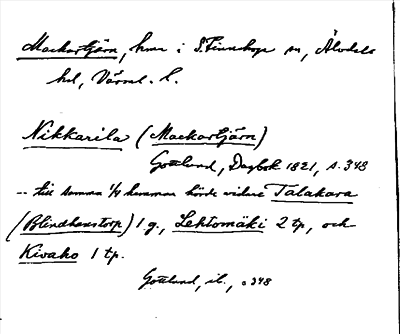 Mackartjärn, hmn i S. Finnskoga sn, Älvdals
hd, Värml. l.
Nikkarila (Mackartjärn)
Gottlund, Dagbok 1821, s. 348
-- till samma 1/4 hemman hörde vidare Talakara
(Blindhenstorp) 1 g., Lehtomäki 2 tp, och
Kivaho 1 tp.
Gottlund, ib., s 348